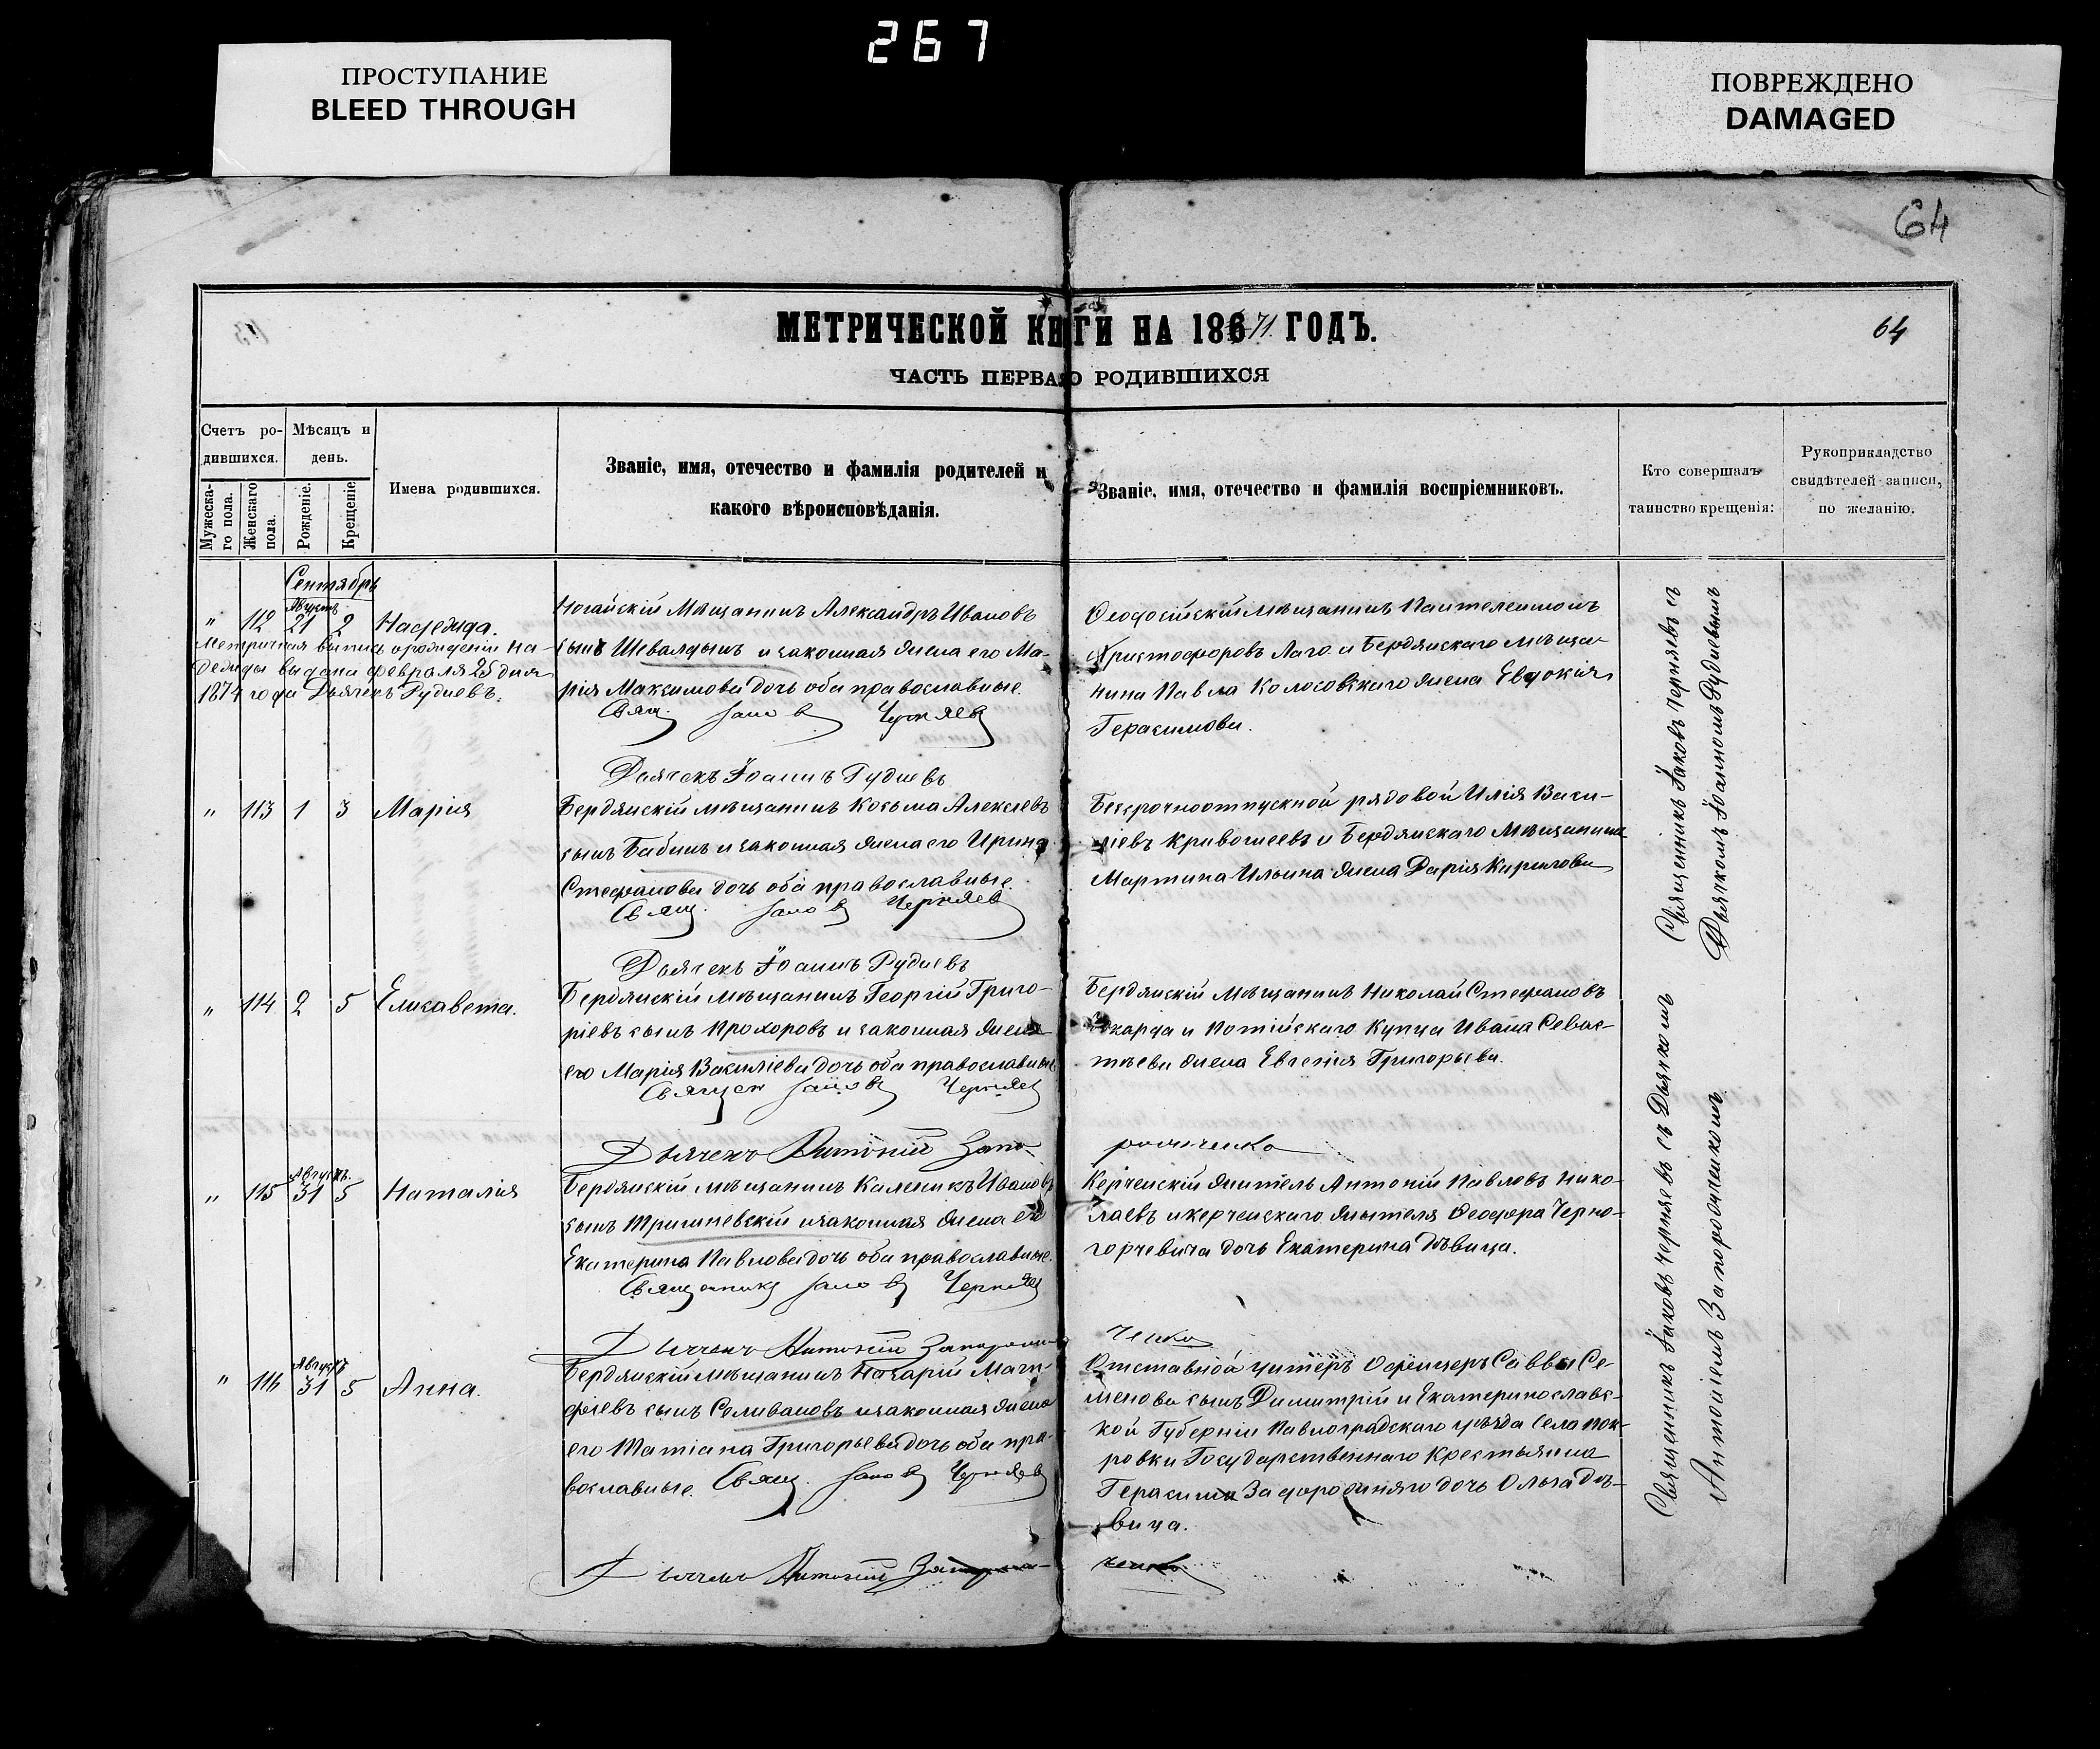 267
ПРОСТУПАНИЕ
BLEED THROUGH
ПОВРЕЖДЕНО
DAMAGED
64
МЕТРИЧЕСКОЙ КНИГИ НА 1871 ГОДЪ.
64
ЧАСТЬ ПЕРВАЯ О РОДИВШИХСЯ
Счетъ ро-
дившихся.
Мужеска-
го пола.
Женскаго
пола.
Мѣсяцъ и
день.
Рожденіе.
Крещеніе
Имена родившихся.
Званіе, имя, отечество и фамилія родителей и
какого вѣроисповѣданія.
Званіе, имя, отечество и фамилія воспріемниковъ.
Кто совершалъ
таинство крещенія:
Рукоприкладство
свидѣтелей записи,
по желанію.
Сентябрь
Августъ
" 112 21 2 Надежда.
Метричная выпись о рожденіи На-
дежды выдана февраля 25 дня
1874 года Дьячекъ Рудиевъ.
Ногайскій Мѣщанинъ Александръ Ивановъ
сынъ Шевалдынъ и законная жена его Ма-
рія Максимова дочь оба православные.
Свящ. Іаковъ Черняевъ
Дьячекъ Іоаннъ Рудиевъ
Ѳеодосійскій мѣщанинъ Пантелеимонъ
Христофоровъ Лаго и Бердянскаго мѣща-
нина Павла Колосовскаго жена Евдокія
Герасимова.
" 113 1 3 Марія
Бердянскій мѣщанинъ Косьма Алексіевъ
сынъ Бабинъ и законная жена его Ирина
Стефанова дочь оба православные.
Свящ. Іаковъ Черняев
Дьячекъ Іоаннъ Рудиевъ
Безсрочноотпускной рядовой Илія Васи-
ліевъ Кривошеевъ и Бердянскаго Мѣщанина
Мартина Ильина жена Дарія Кирилова
" 114 2 5 Елисавета.
Бердянскій мѣщанинъ Георгій Григо-
ріевъ сынъ Прохоровъ и законная жена
его Марія Василіева дочь оба православные
Священ Іаковъ Черняев
Дьячекъ Антоній Запо-
рожченко
Бердянскій Мѣщанинъ Николай Стефановъ
и Потійскаго Купца Ивана Севас-
тѣева жена Евгенія Григорьева.
Августъ.
" 115 31 5 Наталія
Бердянскій мѣщанинъ Каленикъ Ивановъ
сынъ Тришневскій и законная жена его
Екатерина Павлова дочь оба православные.
Священникъ Іаковъ Черняев
Дьячекъ Антоній Запорож
ченко
Керченскій житель Антоній Павловъ Нико-
лаевъ и керченскаго жителя Ѳеодора Черно-
горчевича дочь Екатерина дѣвица.
Августъ
" 116 31 5 Анна.
Бердянскій мѣщанинъ Назарій Мат-
фіевъ сынъ Селивановъ и законная жена
его Татіана Григорьева дочь оба пра-
вославные. Свящ. Іаковъ Черняевъ
Дьячекъ Антоній Запорож-
ченко
Отставной унтеръ Офицеръ Саввы Се-
менова сынъ Димитрій и Екатеринославс-
кой Губерніи Павлоградскаго уѣзда села Пок-
ровки Государственнаго Крестьянина
Герасима дочь Ольга дѣ-
вица.
Священникъ Іаковъ Черняевъ съ
Дьячкомъ Іоанномъ Рудиевымъ
Священникъ Іаковъ Черняевъ съ Дьячкомъ
Антоніемъ Запорожченкомъ